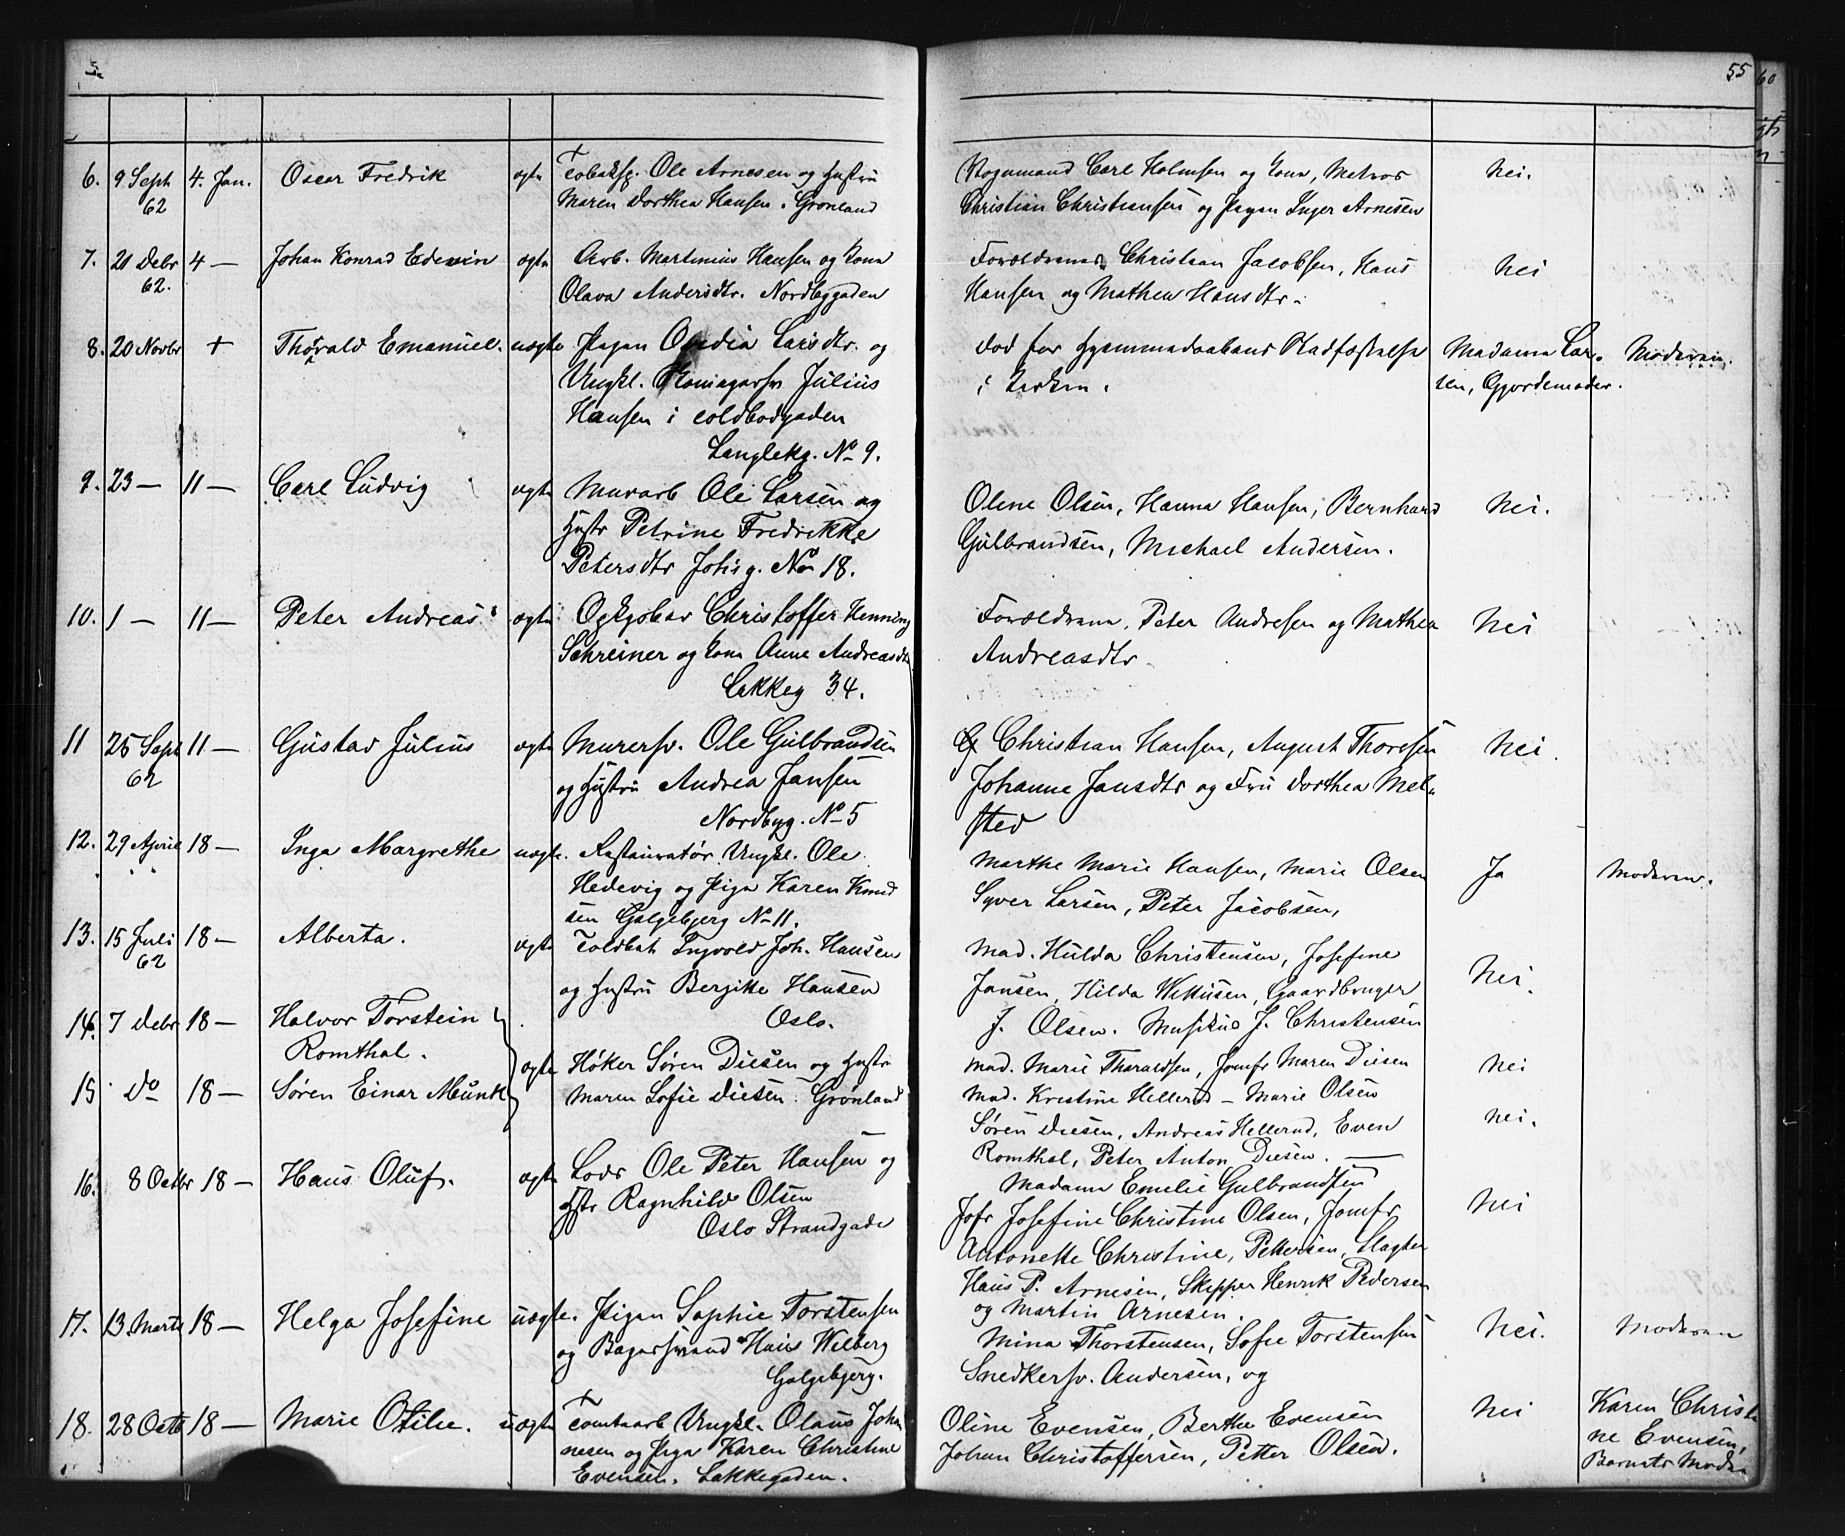 55 60
6. 9 Septb 4. Jan. Oscar Fredrik ægte Tobaksp. Ole Arnesen og Hustru Bognmand Carl Holmsen og Kone, Matros Nei.
62 Maren Dorthea Hansen. Grønland Christian Christiansen og Pigen Inger Arnesen
7. 21 Debr 4 — Johan Konrad Edevin ægte Arb. Martinius Hansen og Kone Forældrene, Christian Jacobsen, Hans Nei
62. Olava Andersdtr. Nordbygaden Hansen og Mathea Hansdtr.
8. 20 Novbr + Thorvald Emanuel. uægte Pigen Larsdtr. og Død før Hjemmedaabens Stadfæstelse Madame Lar- Moderen.
Ungkl. Julius i Kirken. sen, Gjordemoder.
Hansen i Toldbodgaden
Langlekg. No 9.
9. 23 — 11 — Carl Ludvig ægte Murarb Ole Larsen og Olene Olsen, Hanna Hansen, Bernhard Nei.
Hustr Petrine Fredrikke Gulbrandsen, Michael Andersen.
Petersdtr Johsg. No 18.
10. 1 — 11 — Peter Andreas ægte Christoffer Henning Forældrene, Peter Andresen og Mathea Nei
Schreiner og Kone Anne Andreasdtr Andreasdtr.
Lakkeg 34.
11 25 Sept 11 — Gustav Julius ægte Murersv. Ole Gulbrandsen Christian Hansen, August Thoresen Nei.
62 og Hustru Andrea Jansen Johanne Jansdtr og Fru Dorthea Mel-
Nordbyg. No 5 sted
12. 29 April 18 — Inga Margrethe uægte. Restauratør Ungkl. Ole Marthe Marie Hansen, Marie Olsen Ja Moderen.
Hedevig og Pige Karen Knud Syver Larsen, Peter Jacobsen,
sen Galgebjerg No 11.
13. 15 Juli 18 — Alberta. ægte Toldbet Ingvold Joh. Hansen Mad. Hulda Christensen, Josefine Nei.
62 og Hustru Bergitte Hansen Jansen, Hilda Gaardbruger
Oslo. J. Olsen. Musikus J. Christensen
14. 7 Debr 18 — Halvor Torstein
Romthal. ægte Høker Søren Diesen og Hustr Mad. Marie Tharaldsen, Jomfr Maren Diesen Nei
15 Do 18 — Søren Einar Munk Maren Sofie Diesen. Grønland Mad. Kristine Hellerud — Marie Olsen
Søren Diesen, Andreas Hellerud, Even Nei.
Romthal, Peter Anton Diesen. —
16. 8 Octbr 18 — Hans Oluf. ægte Lods Ole Peter Hansen og Madame Emilie Gulbrandsen
Hstr Ragnhild Olsen Jofr Josefine Christine Olsen, Jomfr Nei
Oslo Strandgade Antonette Christine, Pettersen, Slagter
Hans P. Arnesen, Skipper Henrik Pedersen
og Martin Arnesen.
17. 13. Marts 18 — Helga Josefine uægte. Pigen Sophie Torstensen Mina Thorstensen, Sofie Torstensen Nei. Moderen
og Bagersvend Hans Wilberg Snedkersv. Andersen, og
Galgebjerg.
18. 28 Octb 18 — Marie Otilie. uægte Tomtearb Ungkl. Olaus Johan Oline Evensen, Berthe Evensen Nei Karen Christi
nesen og Pige Karen Christine Johan Christoffersen, Petter Olsen. ne Evensen,
Evensen. Lakkegaden. Barnets Moder